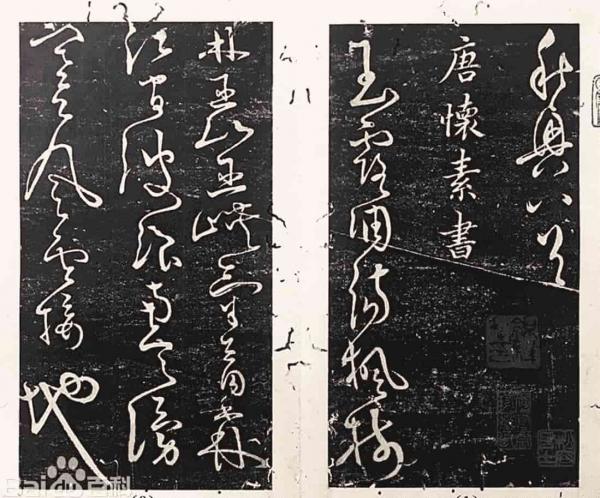 秋興八首
唐懷素書
玉露凋傷楓樹
林巫山巫峽氣蕭森
江間波浪兼天湧
塞上風雲接地
Bai百科